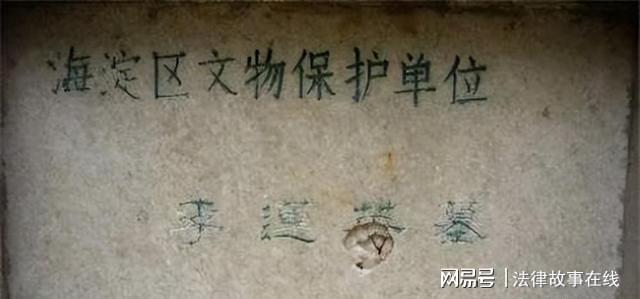 海淀区文物保护单位
李莲英墓
网易号 | 法律故事在线